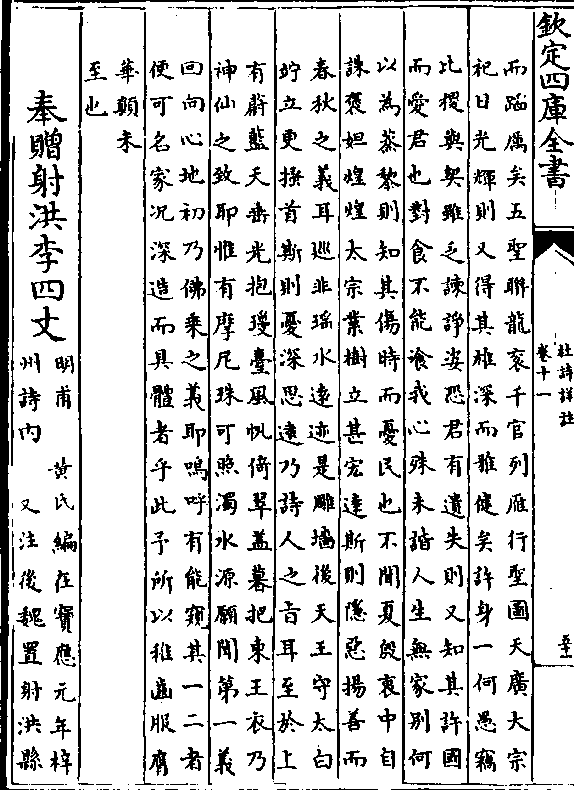 欽定四庫全書
杜詩詳註
卷十一
而蹈厲矣五聖聯龍衮千官列雁行聖圖天廣大宗
祀日光輝則又得其雄深而雅健矣許身一何愚竊
比稷與契雖乏諫諍姿恐君有遺失則又知其許國
而愛君也對食不能飡我心殊未諧人生無家別何
以為蒸黎則知其傷時而憂民也不聞夏殷衰中自
誅褒妲煌煌太宗業樹立甚宏達斯則隱惡揚善而
春秋之義耳巡非瑶水遠迹是雕墻後天王守太白
竚立更搔首斯則憂深思遠乃詩人之旨耳至於上
有蔚藍天垂光抱瓊臺風帆倚翠蓋暮把東王衣乃
神仙之致耶惟有摩尼珠可照濁水源願聞第一義
回向心地初乃佛乘之義耶嗚呼有能窺其一二者
便可名家况深造而具體者乎此予所以稚齒服膺
華顛未
至也
奉贈射洪李四丈
明甫 黄氏編在寶應元年梓
州詩内 又注後魏置射洪縣